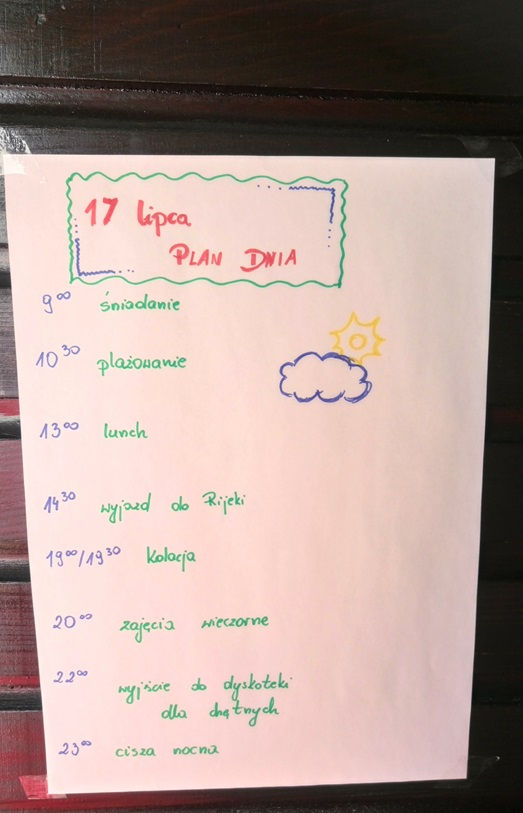 17 lipca
PLAN DNIA
9⁰⁰ śniadanie
10³⁰ plażowanie
13⁰⁰ lunch
14³⁰ wyjazd do Rijeki
19⁰⁰/19³⁰ Kolacja
20⁰⁰ zajęcia wieczorne
22⁰⁰ wyjście do dyskoteki
dla chętnych
23⁰⁰ cisza nocna